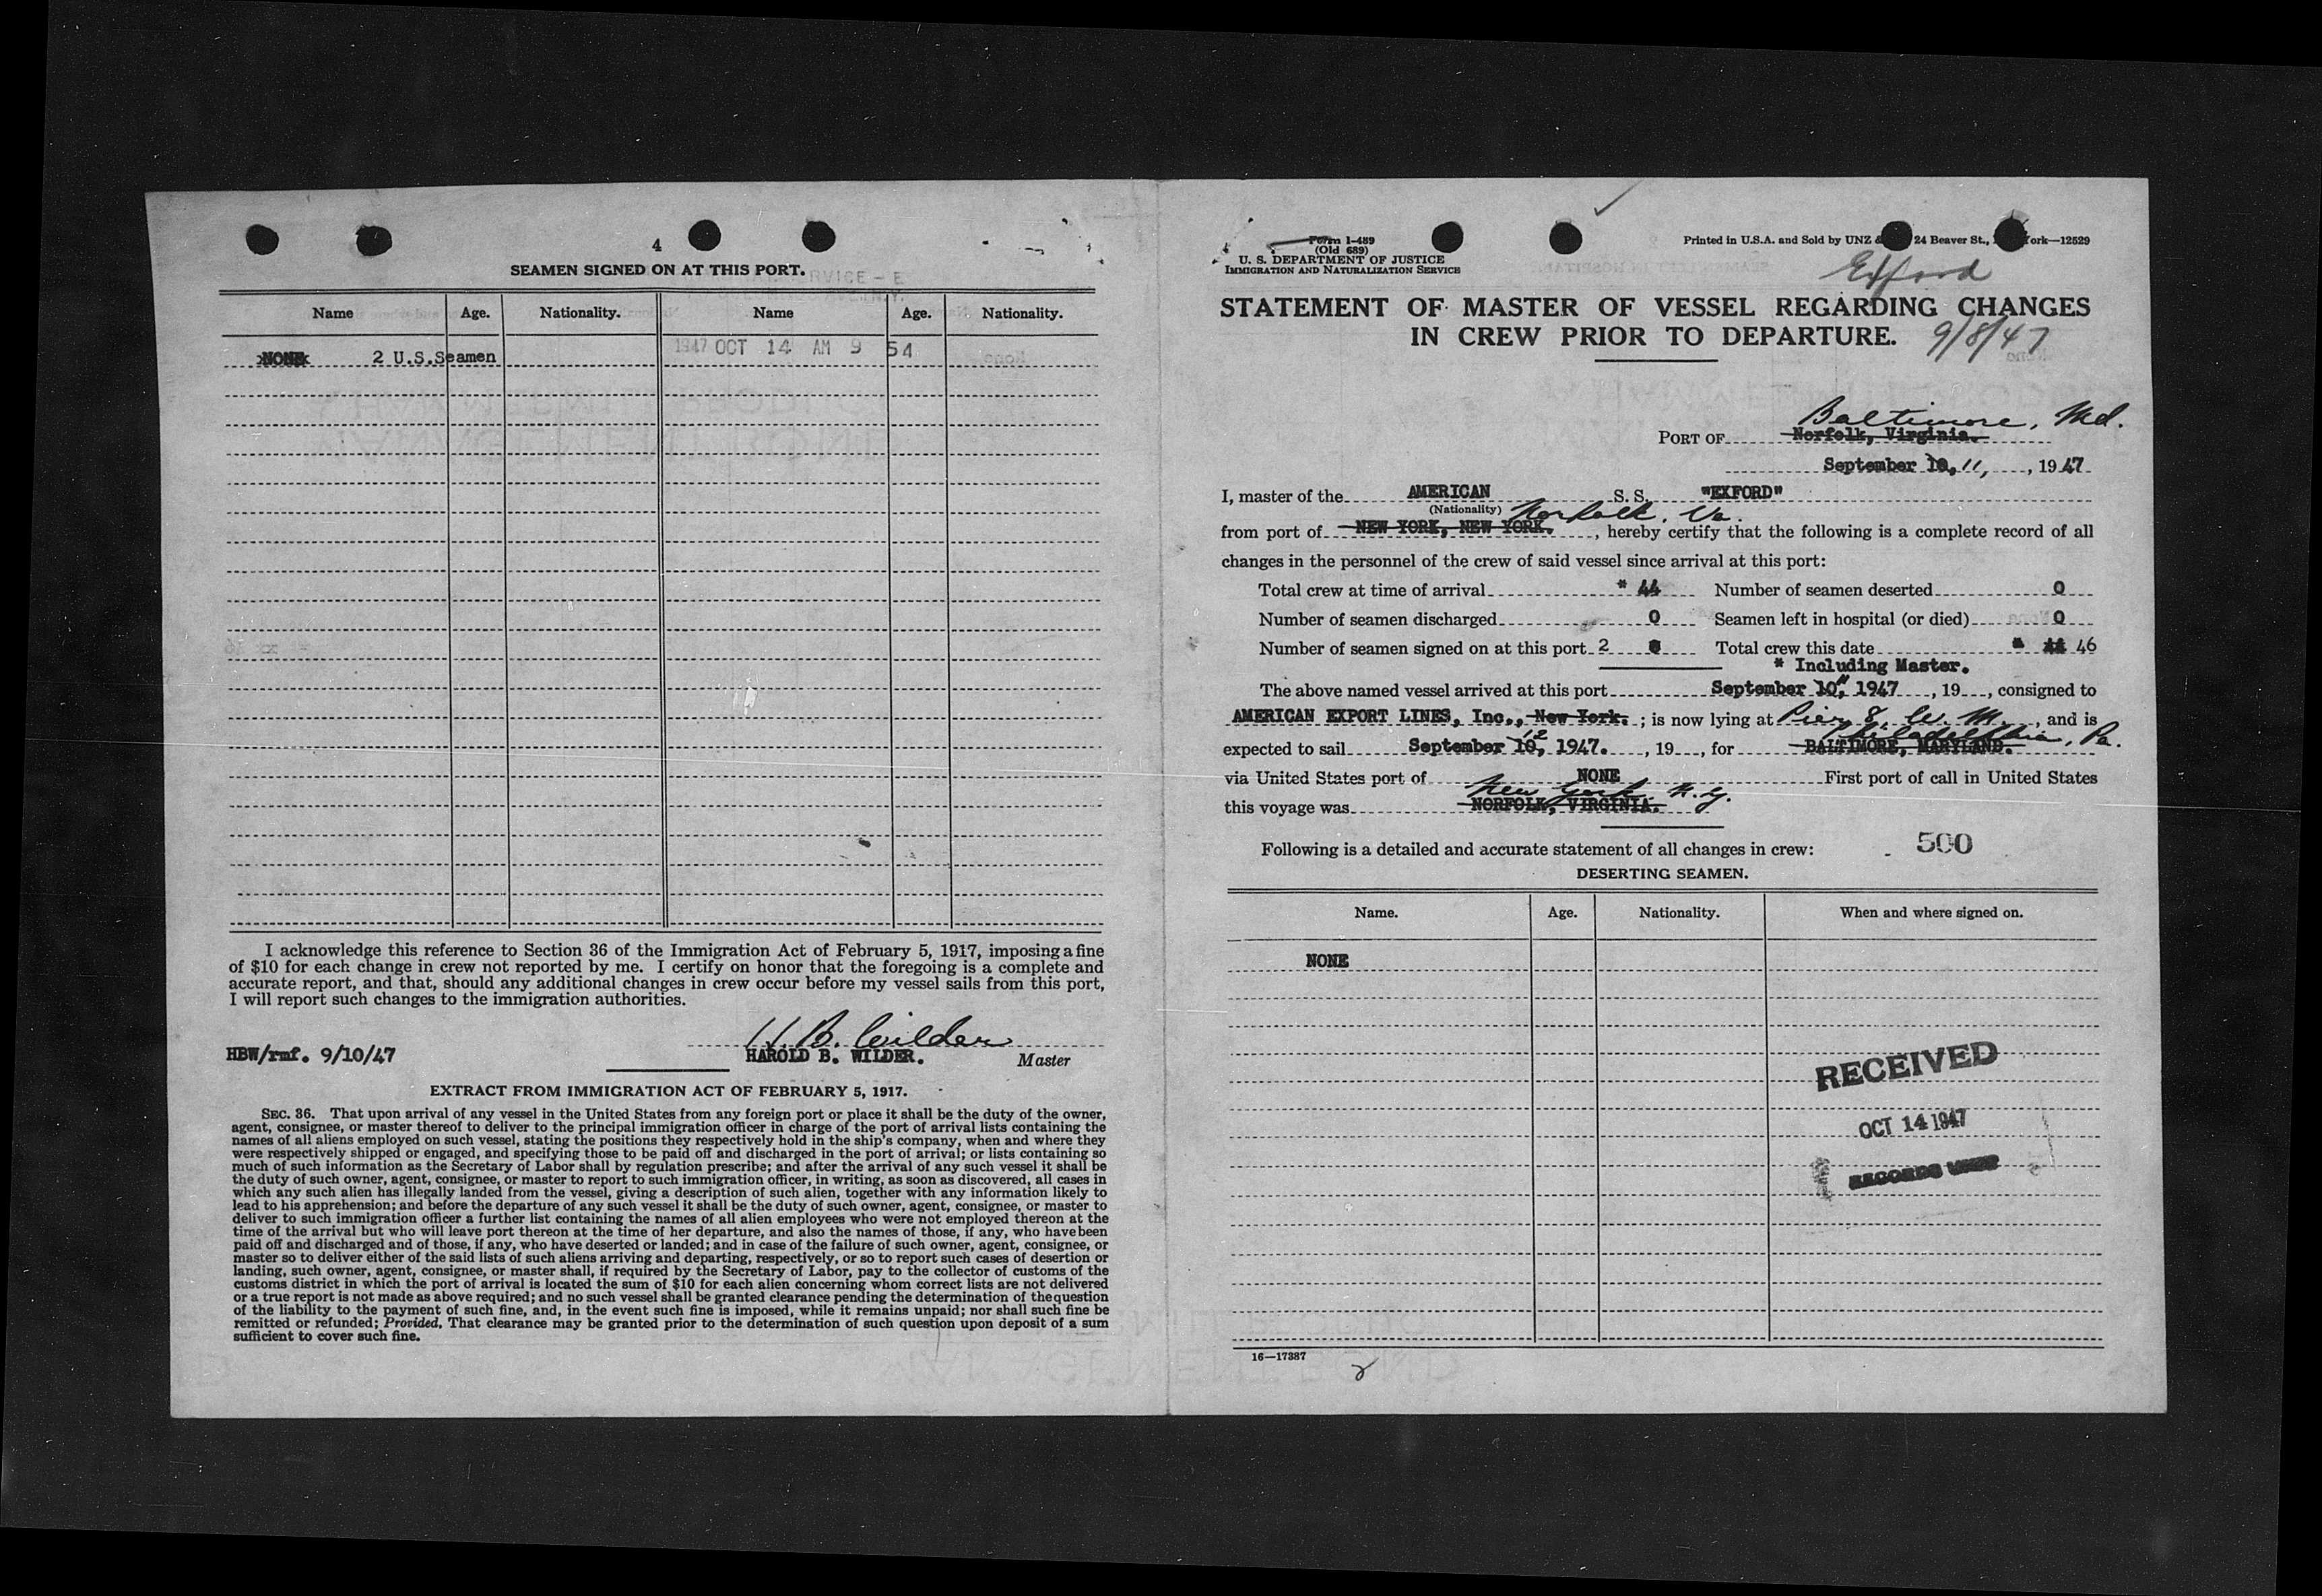 4
SEAMEN SIGNED ON AT THIS PORT.
RVICE - E
Name Age. Nationality. Name Age. Nationality.
NONE 2 U.S.Seamen 1947 OCT 14 AM 9 54
I acknowledge this reference to Section 36 of the Immigration Act of February 5, 1917, imposing a fine
of $10 for each change in crew not reported by me. I certify on honor that the foregoing is a complete and
accurate report, and that, should any additional changes in crew occur before my vessel sails from this port,
I will report such changes to the immigration authorities.
H. B. Wilder
HBW/rmf. 9/10/47 HAROLD B. WILDER. Master
EXTRACT FROM IMMIGRATION ACT OF FEBRUARY 5, 1917.
SEC. 36. That upon arrival of any vessel in the United States from any foreign port or place it shall be the duty of the owner,
agent, consignee, or master thereof to deliver to the principal immigration officer in charge of the port of arrival lists containing the
names of all aliens employed on such vessel, stating the positions they respectively hold in the ship's company, when and where they
were respectively shipped or engaged, and specifying those to be paid off and discharged in the port of arrival; or lists containing so
much of such information as the Secretary of Labor shall by regulation prescribe; and after the arrival of any such vessel it shall be
the duty of such owner, agent, consignee, or master to report to such immigration officer, in writing, as soon as discovered, all cases in
which any such alien has illegally landed from the vessel, giving a description of such alien, together with any information likely to
lead to his apprehension; and before the departure of any such vessel it shall be the duty of such owner, agent, consignee, or master to
deliver to such immigration officer a further list containing the names of all alien employees who were not employed thereon at the
time of the arrival but who will leave port thereon at the time of her departure, and also the names of those, if any, who have been
paid off and discharged and of those, if any, who have deserted or landed; and in case of the failure of such owner, agent, consignee, or
master so to deliver either of the said lists of such aliens arriving and departing, respectively, or so to report such cases of desertion or
landing, such owner, agent, consignee, or master shall, if required by the Secretary of Labor, pay to the collector of customs of the
customs district in which the port of arrival is located the sum of $10 for each alien concerning whom correct lists are not delivered
or a true report is not made as above required; and no such vessel shall be granted clearance pending the determination of the question
of the liability to the payment of such fine, and, in the event such fine is imposed, while it remains unpaid; nor shall such fine be
remitted or refunded; Provided, That clearance may be granted prior to the determination of such question upon deposit of a sum
sufficient to cover such fine.
Form I-489
(Old 689)
U. S. DEPARTMENT OF JUSTICE
IMMIGRATION AND NATURALIZATION SERVICE
Printed in U.S.A. and Sold by UNZ & 24 Beaver St., ork—12529
Exford
STATEMENT OF MASTER OF VESSEL REGARDING CHANGES
IN CREW PRIOR TO DEPARTURE.
9/8/47
Baltimore, Md.
PORT OF Norfolk, Virginia.
September 10, 11, , 1947
I, master of the AMERICAN S. S. "EXFORD"
(Nationality) Norfolk, Va.
from port of NEW YORK, NEW YORK. , hereby certify that the following is a complete record of all
changes in the personnel of the crew of said vessel since arrival at this port:
Total crew at time of arrival * 44 Number of seamen deserted 0
Number of seamen discharged 0 Seamen left in hospital (or died) 0
Number of seamen signed on at this port 2 Total crew this date * 44 46
* Including Master.
The above named vessel arrived at this port September 10, 11 1947 , 19 , consigned to
AMERICAN EXPORT LINES, Inc., New York. ; is now lying at Pier 8, W. M. , and is
Philadelphia, Pa.
expected to sail September 10, 12 1947. , 19 , for BALTIMORE, MARYLAND.
via United States port of NONE First port of call in United States
New York N.Y.
this voyage was NORFOLK, VIRGINIA.
Following is a detailed and accurate statement of all changes in crew: 500
DESERTING SEAMEN.
Name. Age. Nationality. When and where signed on.
NONE
RECEIVED
OCT 14 1947
RECORDS
16—17387
2